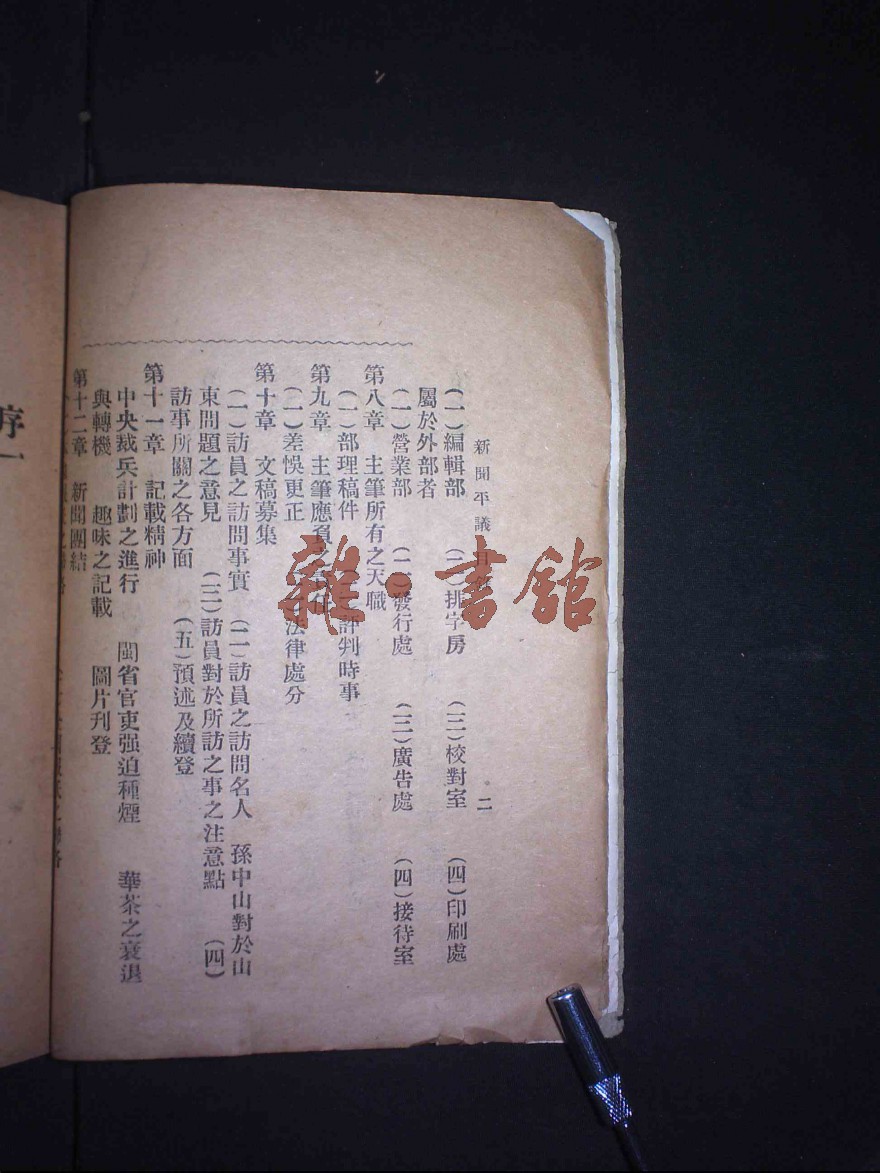 新聞平議 二
(一)編輯部 (二)排字房 (三)校對室 (四)印刷處
屬於外部者
(一)營業部 (二)發行處 (三)廣告處 (四)接待室
第八章 主筆所有之天職
(一)部理稿件 評判時事
第九章 主筆應負
(一)差悞更正 法律處分
第十章 文稿募集
(一)訪員之訪問事實 (二)訪員之訪問名人 孫中山對於山
東問題之意見 (三)訪員對於所訪之事之注意點 (四)
訪事所關之各方面 (五)預述及續登
第十一章 記載精神
中央裁兵計劃之進行 閩省官吏强迫種煙 華茶之衰退
與轉機 趣味之記載 圖片刊登
第十二章 新聞團結
序一
雜·書館